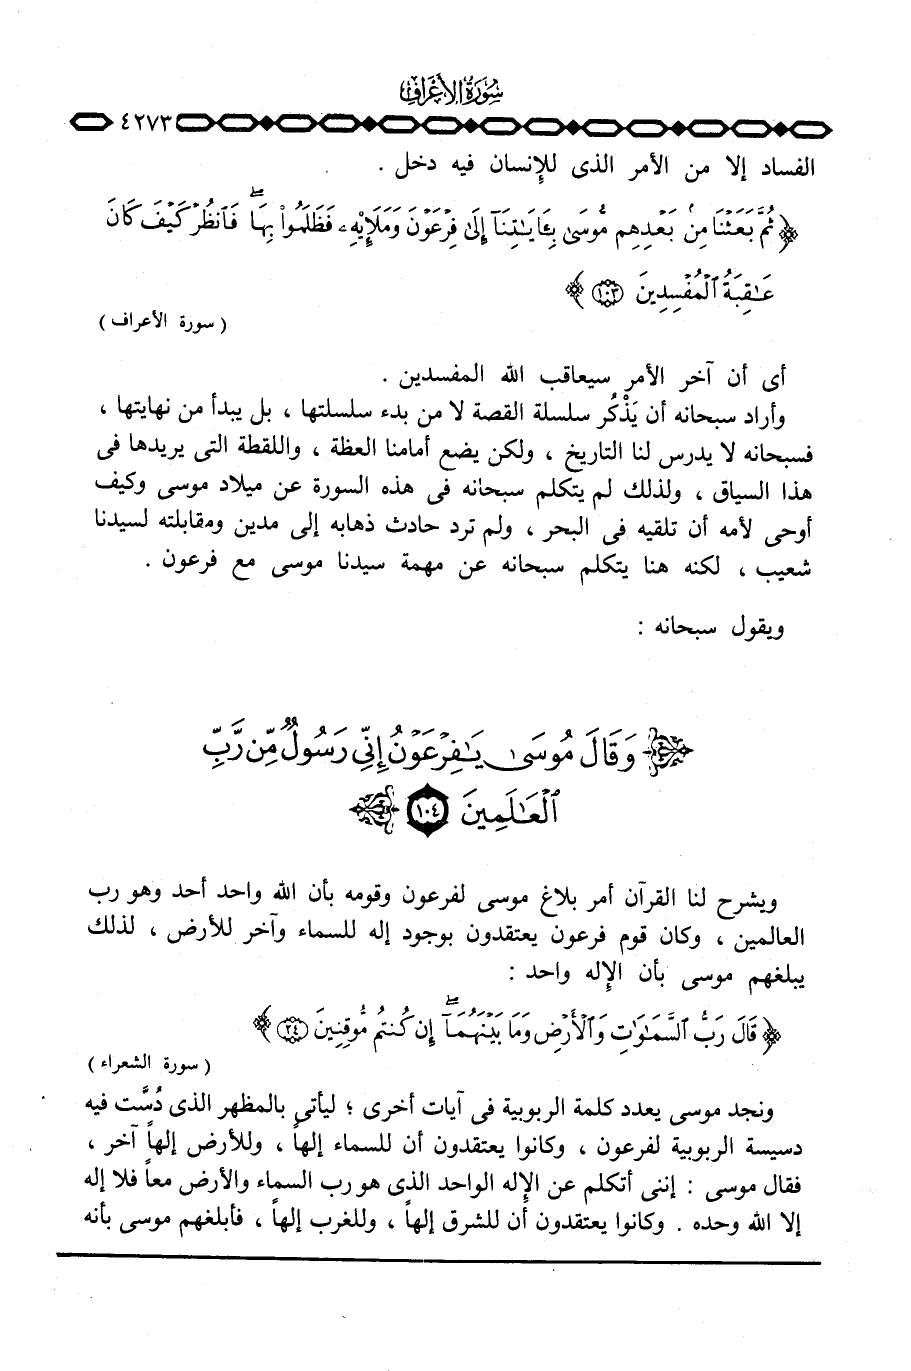 سورة الأعراف
٤٢٧٣
الفساد إلا من الأمر الذى للإنسان فيه دخل .
﴿ ثُمَّ بَعَثْنَا مِنۢ بَعْدِهِم مُّوسَىٰ بِـَٔايَـٰتِنَآ إِلَىٰ فِرْعَوْنَ وَمَلَإِي۟هِۦ فَظَلَمُوا۟ بِهَا ۖ فَٱنظُرْ كَيْفَ كَانَ
عَـٰقِبَةُ ٱلْمُفْسِدِينَ ١٠٣ ﴾
( سورة الأعراف )
أى أن آخر الأمر سيعاقب الله المفسدين .
وأراد سبحانه أن يَذْكُر سلسلة القصة لا من بدء سلسلتها ، بل يبدأ من نهايتها ،
فسبحانه لا يدرس لنا التاريخ ، ولكن يضع أمامنا العظة ، واللقطة التى يريدها فى
هذا السياق ، ولذلك لم يتكلم سبحانه فى هذه السورة عن ميلاد موسى وكيف
أوحى لأمه أن تلقيه فى البحر ، ولم ترد حادث ذهابه إلى مدين ومقابلته لسيدنا
شعيب ، لكنه هنا يتكلم سبحانه عن مهمة سيدنا موسى مع فرعون .
ويقول سبحانه :
﴿ وَقَالَ مُوسَىٰ يَـٰفِرْعَوْنُ إِنِّى رَسُولٌ مِّن رَّبِّ
ٱلْعَـٰلَمِينَ ١٠٤ ﴾
ويشرح لنا القرآن أمر بلاغ موسى لفرعون وقومه بأن الله واحد أحد وهو رب
العالمين ، وكان قوم فرعون يعتقدون بوجود إله للسماء وآخر للأرض ، لذلك
يبلغهم موسى بأن الإله واحد :
﴿ قَالَ رَبُّ ٱلسَّمَـٰوَٰتِ وَٱلْأَرْضِ وَمَا بَيْنَهُمَآ ۖ إِن كُنتُم مُّوقِنِينَ ٢٤ ﴾
( سورة الشعراء )
ونجد موسى يعدد كلمة الربوبية فى آيات أخرى ؛ ليأتى بالمظهر الذى دُسَّت فيه
دسيسة الربوبية لفرعون ، وكانوا يعتقدون أن للسماء إلهاً ، وللأرض إلهاً آخر ،
فقال موسى : إننى أتكلم عن الإله الواحد الذى هو رب السماء والأرض معاً فلا إله
إلا الله وحده . وكانوا يعتقدون أن للشرق إلهاً ، وللغرب إلهاً ، فأبلغهم موسى بأنه